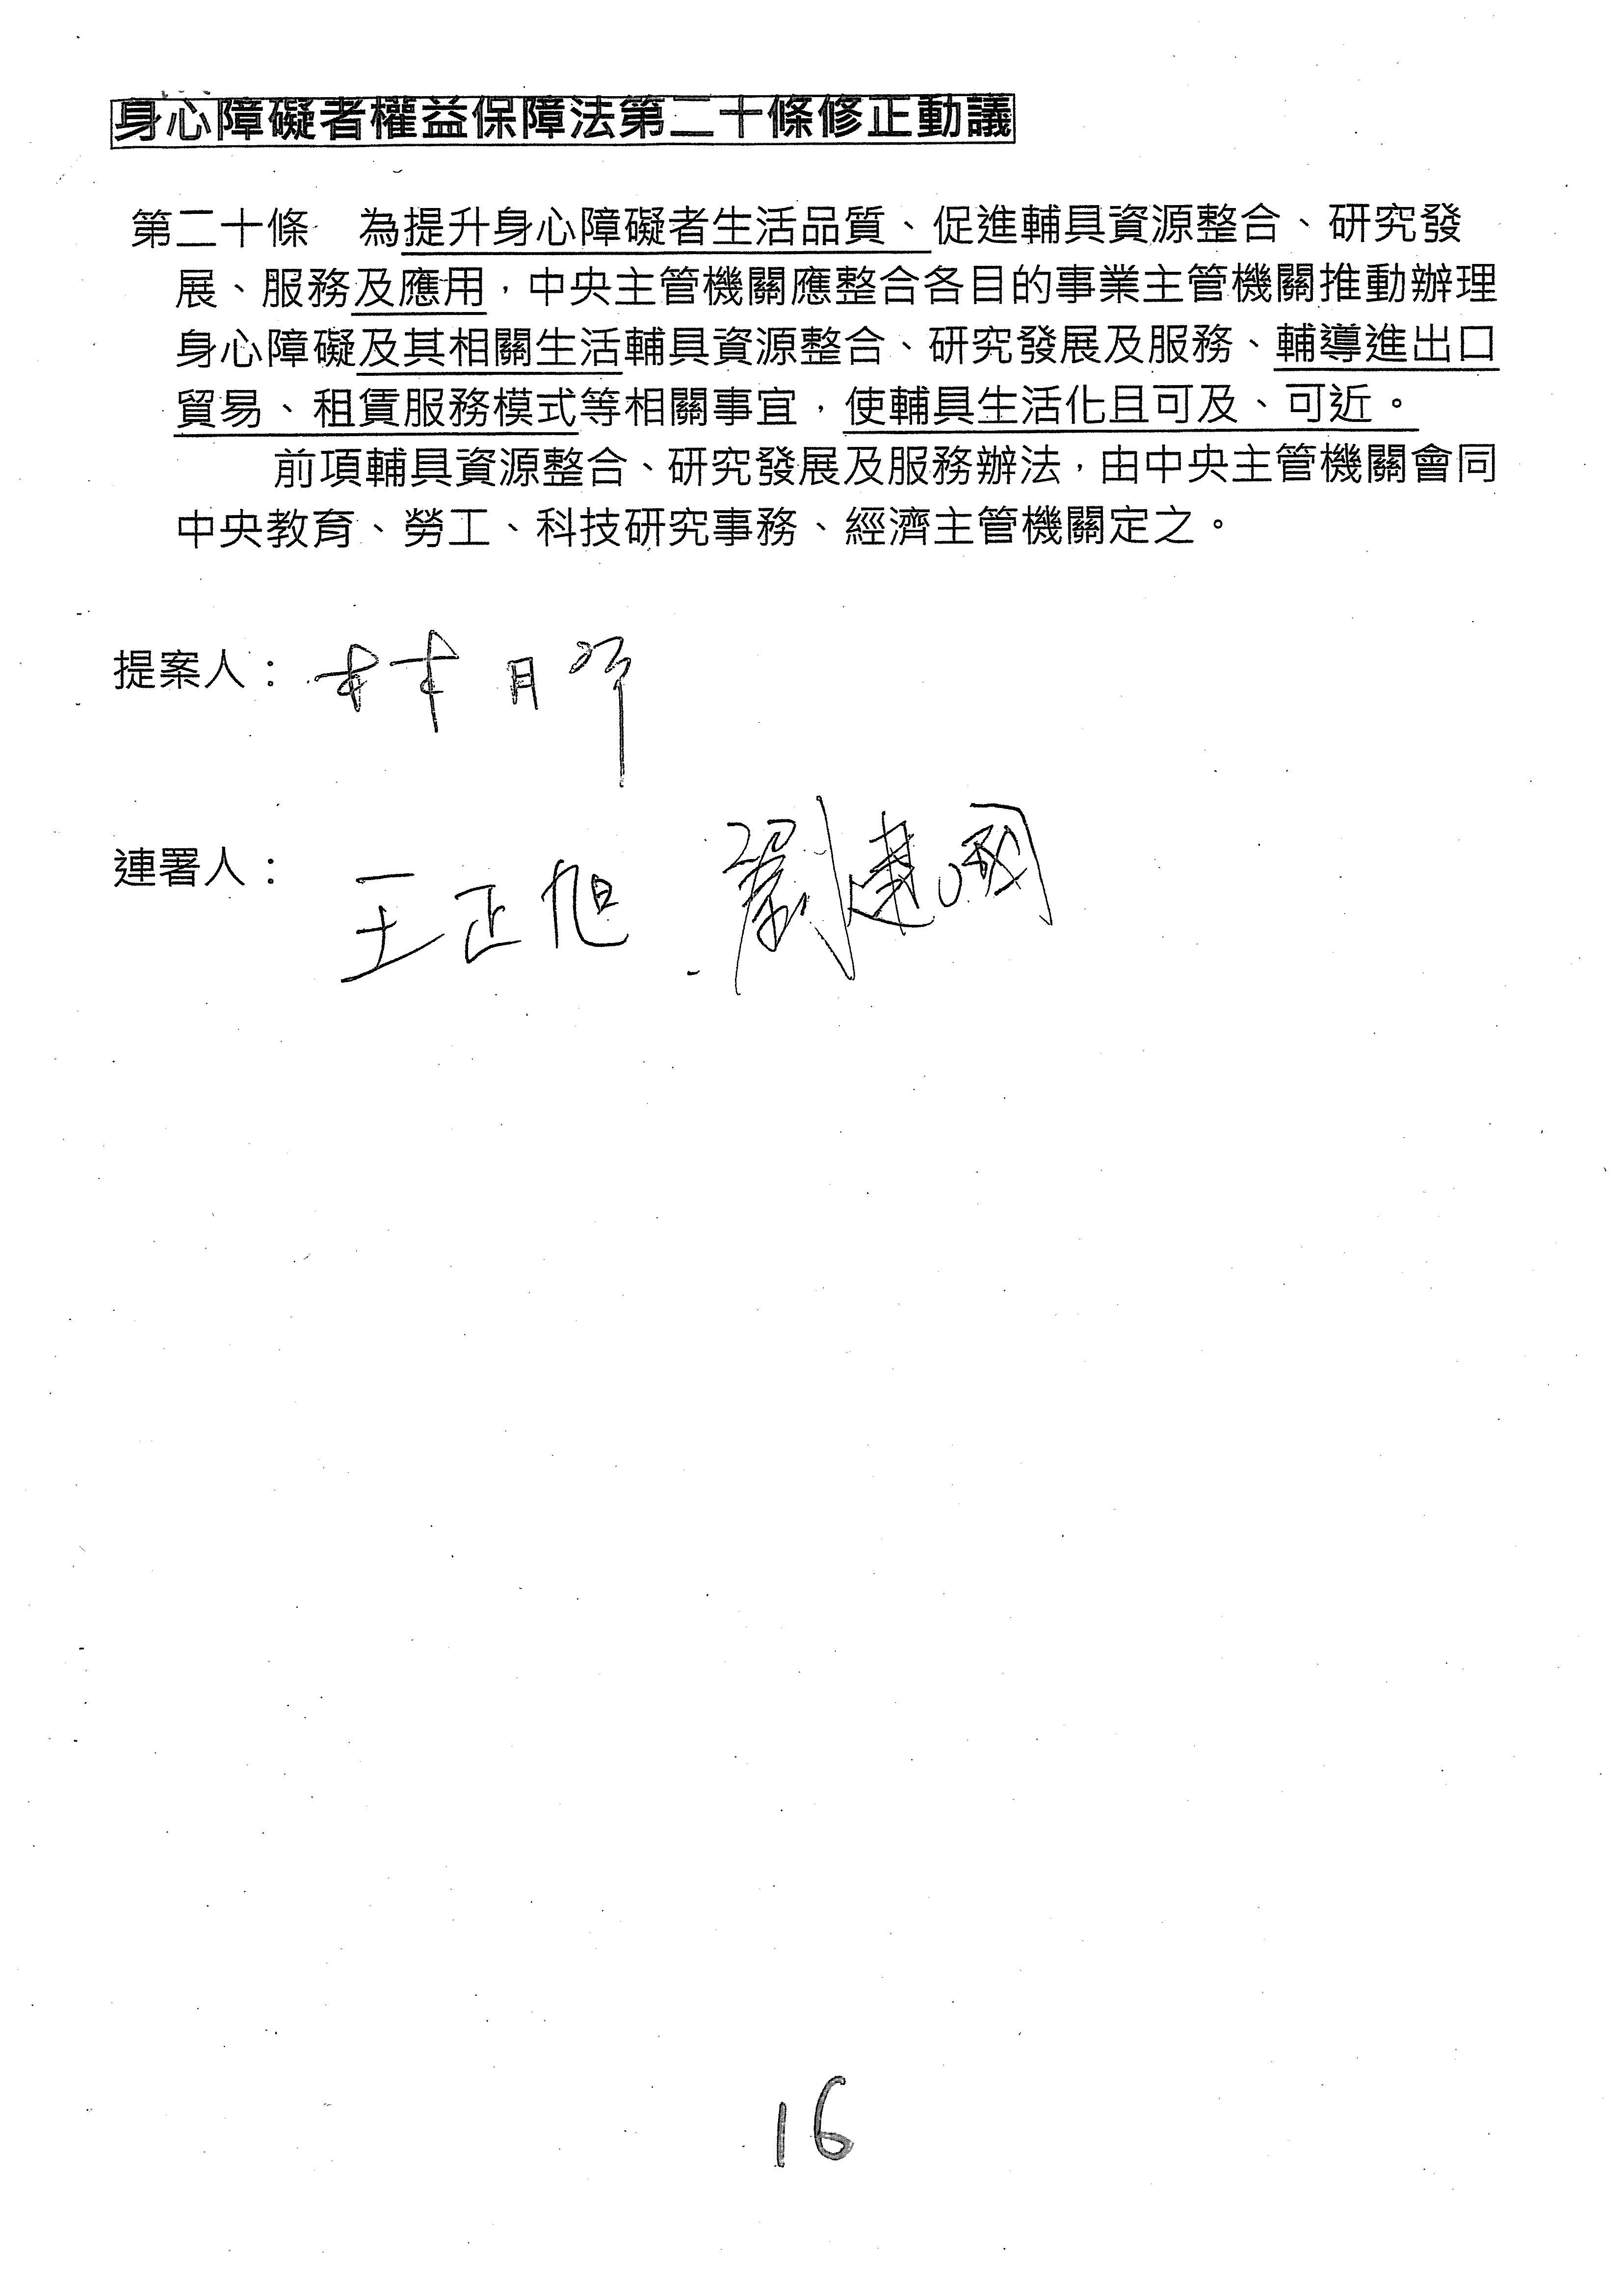 身心障礙者權益保障法第二十條修正動議
第二十條 為提升身心障礙者生活品質、促進輔具資源整合、研究發
展、服務及應用，中央主管機關應整合各目的事業主管機關推動辦理
身心障礙及其相關生活輔具資源整合、研究發展及服務、輔導進出口
貿易、租賃服務模式等相關事宜，使輔具生活化且可及、可近。
前項輔具資源整合、研究發展及服務辦法，由中央主管機關會同
中央教育、勞工、科技研究事務、經濟主管機關定之。
提案人：林月琴
連署人：王正旭 劉建國
16